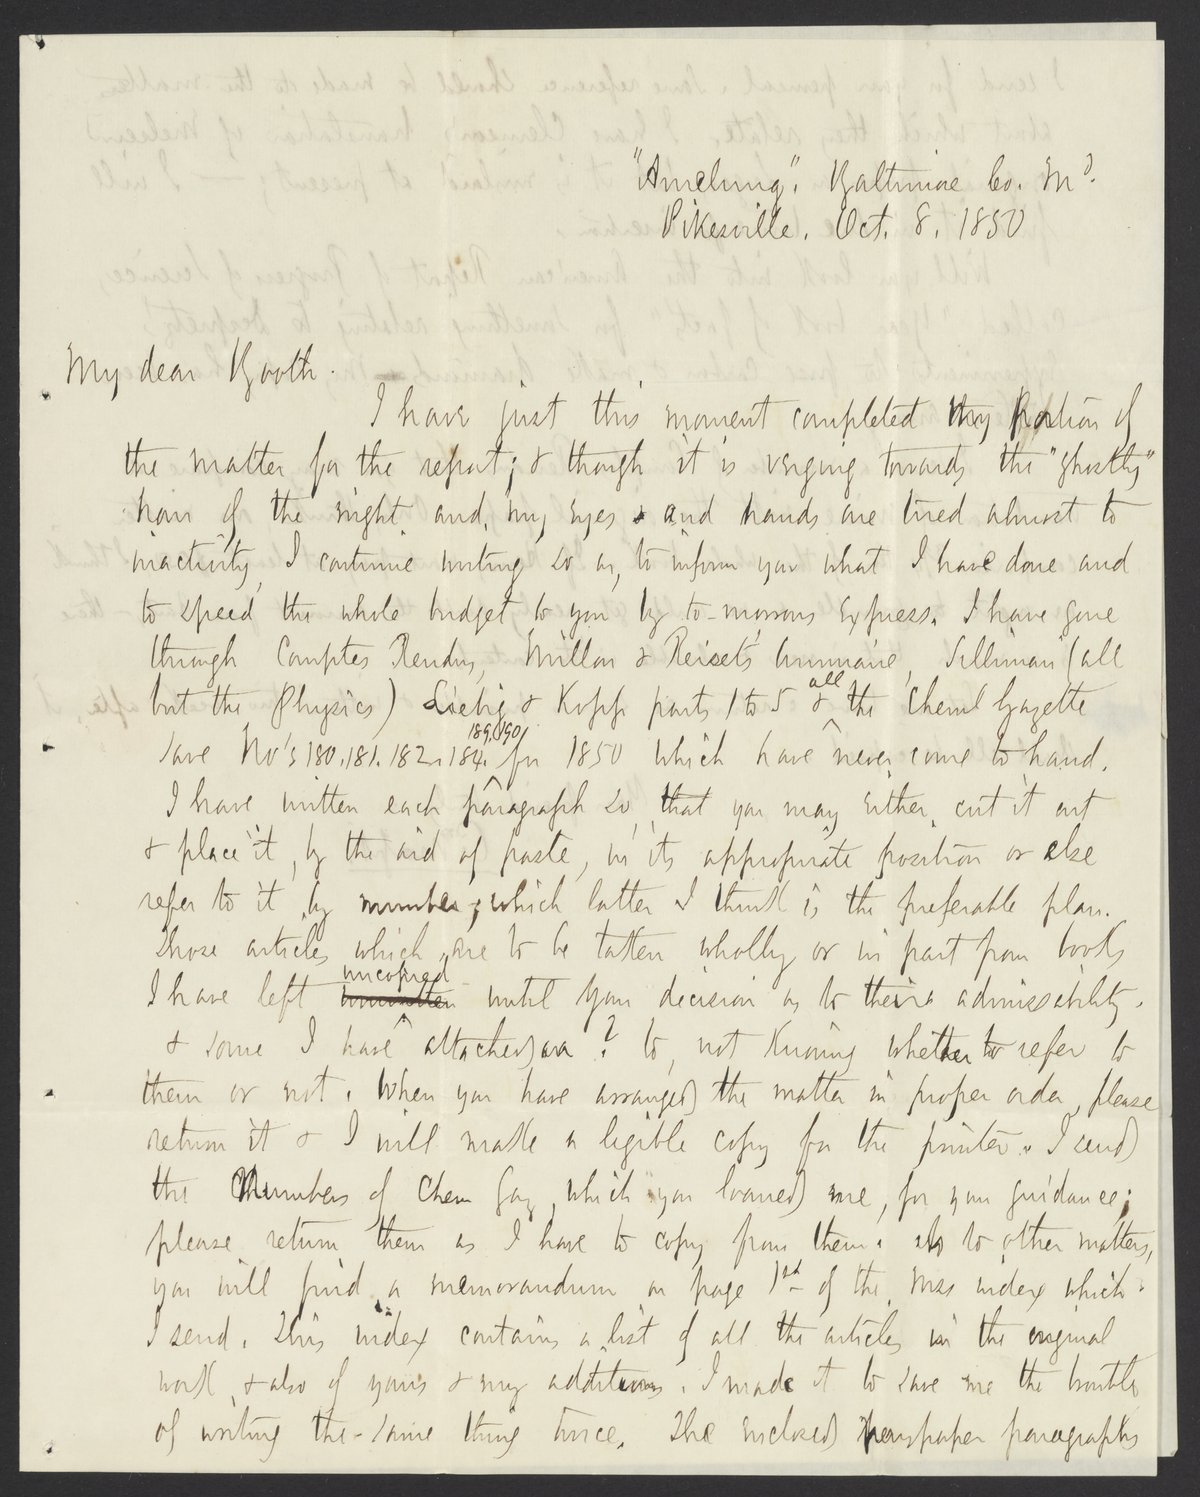 "Amelung". Baltimore Co. Md.
Pikesville. Oct. 8. 1850
My dear Booth.
I have just this moment completed my portion of
the matter for the report; & though it is verging towards the "ghostly"
hour of the night and, my eyes & and hands are tired almost to
inactivity, I continue writing so as, to inform you what I have done and
to speed the whole budget to you by to-morrows Express. I have gone
through Comptes Rendus, Millon & Reiset's Annuaire, Silliman (all
but the Physics) Liebig & Kopp parts 1 to 5 & all the Cheml Gazette
save No's 180. 181. 182. 184. 189. 190. for 1850 which have never come to hand.
I have written each paragraph so, that you may either, cut it out
& place it, by the aid of paste, in its appropriate position or else
refer to it by number; which latter I think is the preferable plan.
Those articles which are to be taken wholly or in part from books
I have left unwritten uncopied until your decision as to their admissibility.
& some I have attached an ? to, not knowing whether to refer to
them or not. When you have arranged the matter in proper order, please
return it & I will make a legible copy for the printer. I send
the Numbers of Chem Gaz, which you loaned me, for your guidance;
please return them as I have to copy from them. As to other matters,
you will find a memorandum on page 1st of the Mss index which
I send. This index contains a list of all the articles in the original
work & also of yours & my additions. I made it to save me the trouble
of writing the same thing twice. The enclosed newspaper paragraphs